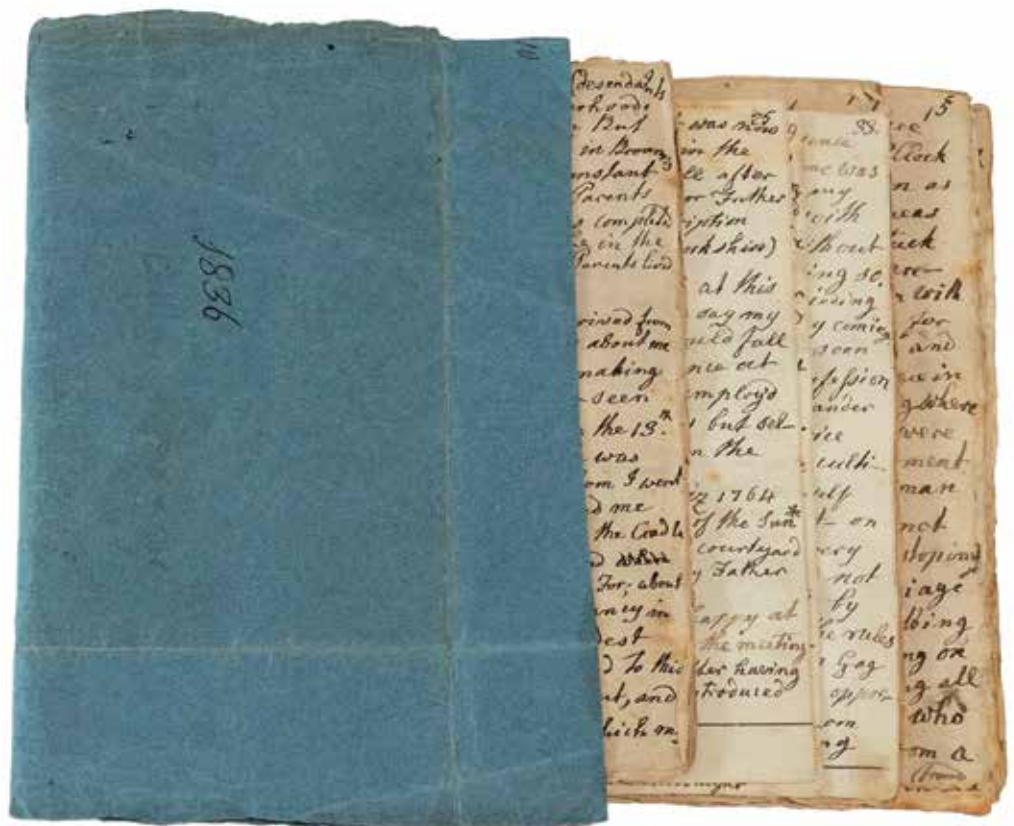 1836
descendants
orhood
But
in
nstant
Parents
s complete
in the
Parents lived
rived from
about me
making
seen
the 13.th
was
om I went
d me
the Cradle
d
For, about
ancy in
dest
d to this
ut, and
which m
25
was now
in the
ll after
or Father
ription
orkshire)
at this
say my
uld fall
nce at
mploy'd
but sel-
n the
1764
of the Sun
courtyard
y Father
happy at
the meeting-
fter having
troduced
33.
me was
my
with
thout
ing so.
y coming
soon
ofession
ander
ice
culti-
elf
t- on
very
not
by
he rules
a Gag
oppor-
om
ng
15
Clock
n as
was
tuck
with
for
and
in
g where
were
ment
man
not
sloping
iage
bing
ng on
ng all
who
om a